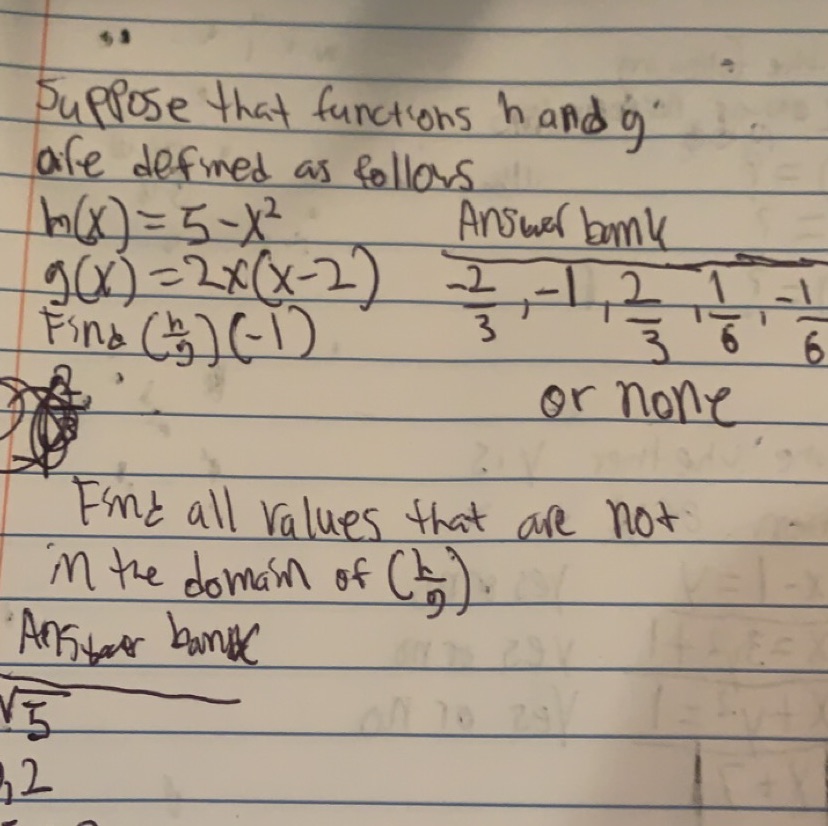 Suppose that functions h and g
are defined as follows
h(x) = 5 - x²
g(x) = 2x(x-2)
Find (h/g)(-1)
Answer bank
-2/3, -1, 2/3, 1/6, -1/6
or none
Find all values that are not
in the domain of (h/g).
Answer bank
√5
, 2